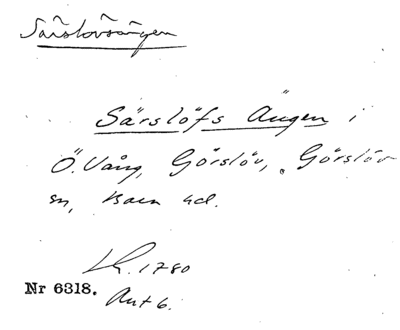 Särslövsängen
Särslöfs Ängen i
Ö. Vång, Görslöv, Görslöv
sn, Bara hd.
Lh. 1780
Nr 6318.
Akt 6.